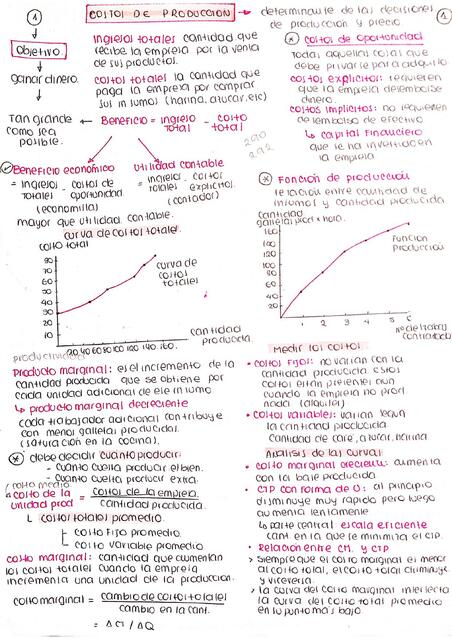 1
COSTOS DE PRODUCCION → determinante de las decisiones
de producción y precio.
1
↓
Objetivo
↓
ganar dinero.
↓
Tan grande
como sea
posible.
ingresos totales cantidad que
recibe la empresa por la venta
de sus productos.
costos totales la cantidad que
paga la empresa por comprar
sus insumos (harina, azucar, etc)
← Beneficio = ingreso total - costo total
290
292
Beneficio económico
= ingresos totales - costos de oportunidad.
(economista)
mayor que utilidad contable.
Utilidad contable
= ingresos totales - costos explicitos.
(contador)
* costos de oportunidad
Todas aquellas cosas que
debe privarse para adquirilo.
costos explicitos: requieren
que la empresa desembolse
dinero.
costos implicitos: no requieren
desembolso de efectivo
↳ capital financiero
que se ha invertido en
la empresa
* Función de producción
relación entre cantidad de
insumos y cantidad producida
cantidad
galletas prod x hora.
160
140
120
100
80
60
40
20
1 2 3 4 5 6
Funcion
Produccion
No de trabaj
contratados
curva de costos totales.
costo total
90
80
70
60
50
40
30
20
10
curva de
costos
totales
20 40 60 80 100 120 140 160.
cantidad
producida.
productividad
Producto marginal: es el incremento de la
cantidad producida que se obtiene por
cada unidad adicional de ese insumo
↳ producto marginal decreciente
cada trabajador adicional contribuye
con menos galletas producidas.
(saturación en la cocina).
* debe decidir cuanto producir:
- cuanto cuesta producir el bien.
- cuanto cuesta producir extra.
/ costo medio
* costo de la unidad prod = costos de la empresa / cantidad producida.
↳ costos totales promedio
costo fijo promedio.
costo variable promedio
costo marginal: cantidad que aumentan
los costos totales cuando la empresa
incrementa una unidad de la produccion.
costo marginal = cambio de costos totales / cambio en la cant.
= ΔCT / ΔQ
Medir los costos.
• costos fijos: no varian con la
cantidad producida estos
costos estan presentes aun
cuando la empresa no prod
nada (alquiler)
• costos variables: varian segun
la cantidad producida
cantidad de café, azucar, harina
Analisis de las curvas:
• costo marginal creciente: aumenta
con las base producida
• CTP con forma de U: al principio
disminuye muy rapido pero luego
aumenta lentamente
↳ parte central escala eficiente
cant. en la que se minimiza el CTP.
• Relacion entre CM. y CTP
> siempre que el costo marginal es menor
al costo total, el costo total disminuye
y viceversa.
> la curva del costo marginal intersecta
la curva del costo total promedio
en su punto mas bajo.